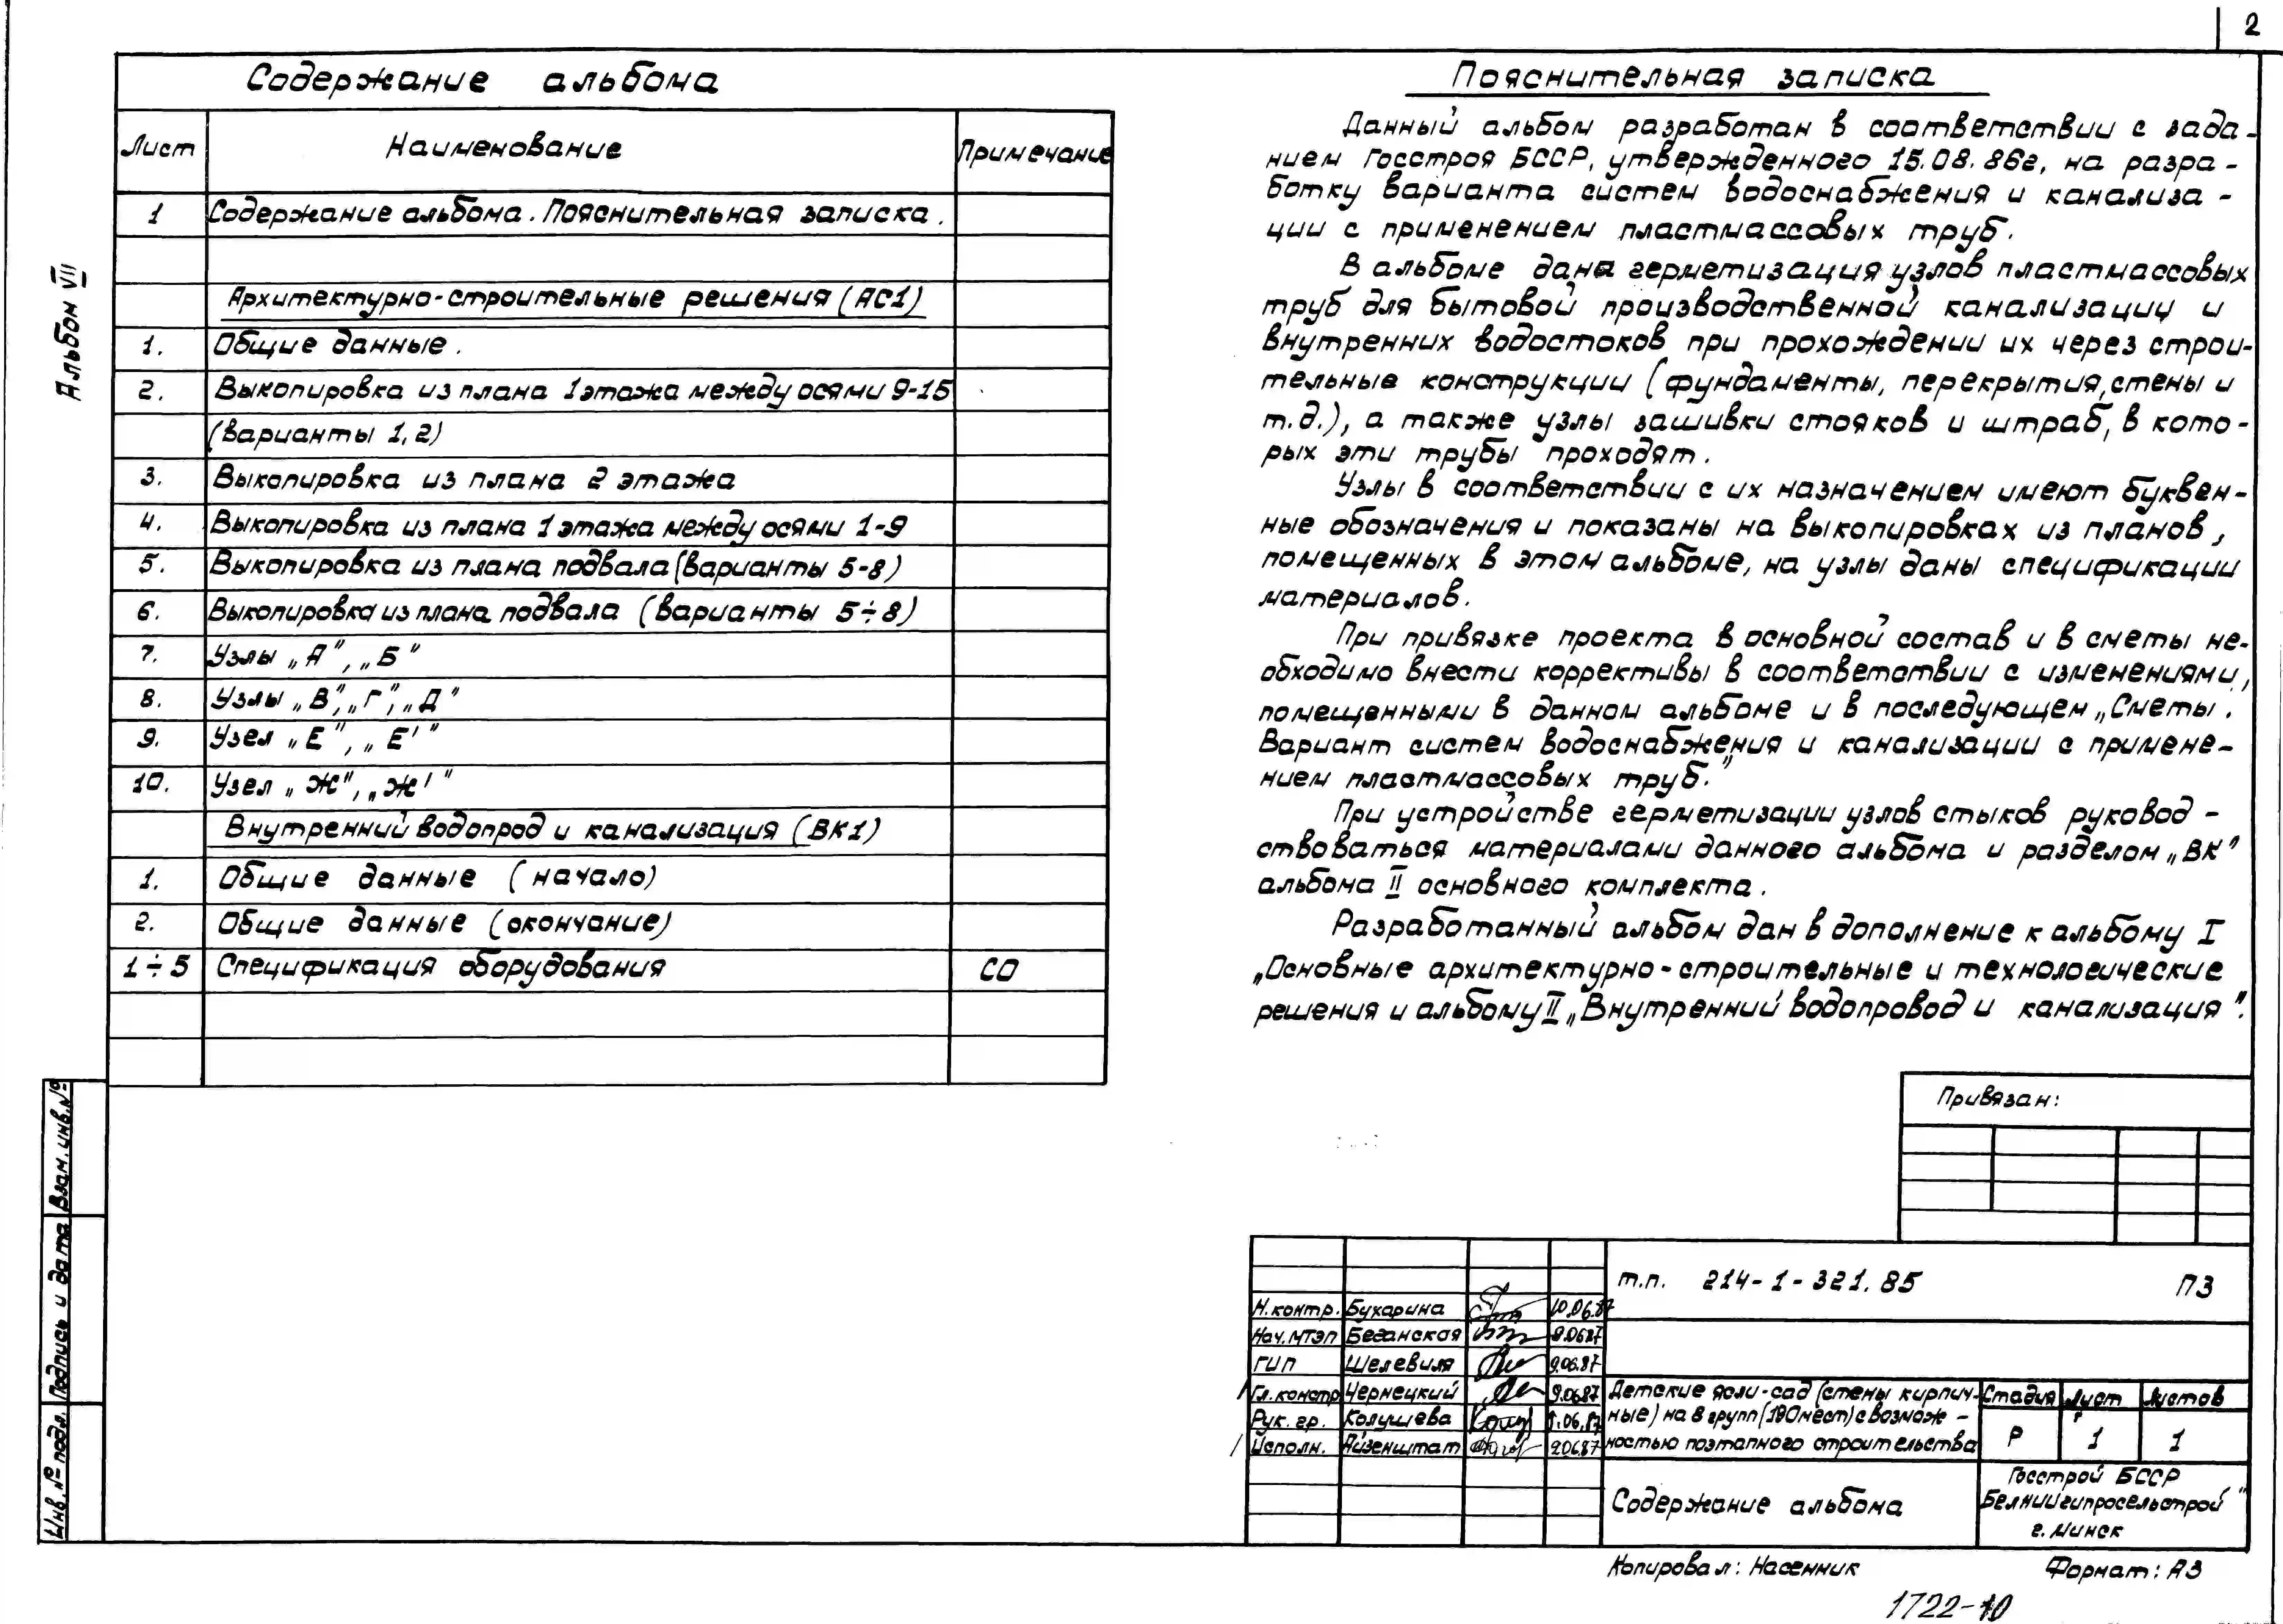 2
Альбом VII
Содержание альбома
Лист Наименование Примечание
1 Содержание альбома. Пояснительная записка.
Архитектурно-строительные решения (АС1)
1. Общие данные.
2. Выкопировка из плана 1 этажа между осями 9-15
(варианты 1,2)
3. Выкопировка из плана 2 этажа
4. Выкопировка из плана 1 этажа между осями 1-9
5. Выкопировка из плана подвала (варианты 5-8)
6. Выкопировка из плана подвала (варианты 5÷8)
7. Узлы „А", „Б"
8. Узлы „В", „Г", „Д"
9. Узел „Е", „Е'"
10. Узел „Ж", „Ж'"
Внутренний водопрод и канализация (ВК1)
1. Общие данные (начало)
2. Общие данные (окончание)
1÷5 Спецификация оборудования СО
Пояснительная записка
Данный альбом разработан в соответствии с зада-
нием Госстроя БССР, утвержденного 15.08.86г, на разра-
ботку варианта систем водоснабжения и канализа-
ции с применением пластмассовых труб.
В альбоме дана герметизация узлов пластмассовых
труб для бытовой производственной канализации и
внутренних водостоков при прохождении их через строи-
тельные конструкции (фундаменты, перекрытия, стены и
т.д.), а также узлы зашивки стояков и штраб, в кото-
рых эти трубы проходят.
Узлы в соответствии с их назначением имеют буквен-
ные обозначения и показаны на выкопировках из планов,
помещенных в этом альбоме, на узлы даны спецификации
материалов.
При привязке проекта в основной состав и в сметы не-
обходимо внести коррективы в соответствии с изменениями,
помещенными в данном альбоме и в последующем „Сметы.
Вариант систем водоснабжения и канализации с примене-
нием пластмассовых труб."
При устройстве герметизации узлов стыков руковод-
ствоваться материалами данного альбома и разделом „ВК"
альбома II основного комплекта.
Разработанный альбом дан в дополнение к альбому I
„Основные архитектурно-строительные и технологические
решения и альбому II „Внутренний водопровод и канализация".
Привязан:
т.п. 214-1-321.85 ПЗ
Н.контр. Бухарина 10.06.87
Нач.МТЭП Беганская 9.06.87
ГИП Шелевиля 9.06.87
Гл.констр Чернецкий 9.06.87
Рук. гр. Колушева 9.06.87
Исполн. Айзенштат 9.06.87
Детские ясли-сад (стены кирпич-
ные) на 8 групп (190 мест) с возмож-
ностью поэтапного строительства
Стадия Лист Листов
Р 1 1
Содержание альбома
Госстрой БССР
Белниигипросельстрой"
г. Минск
Копировал: Насенник Формат: А3
1722-10
Инв.№ подл. Подпись и дата Взам.инв.№